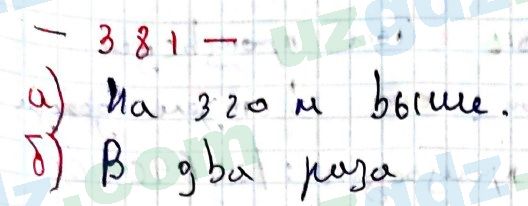 — 381 —
а) На 320 м выше.
б) В два раза